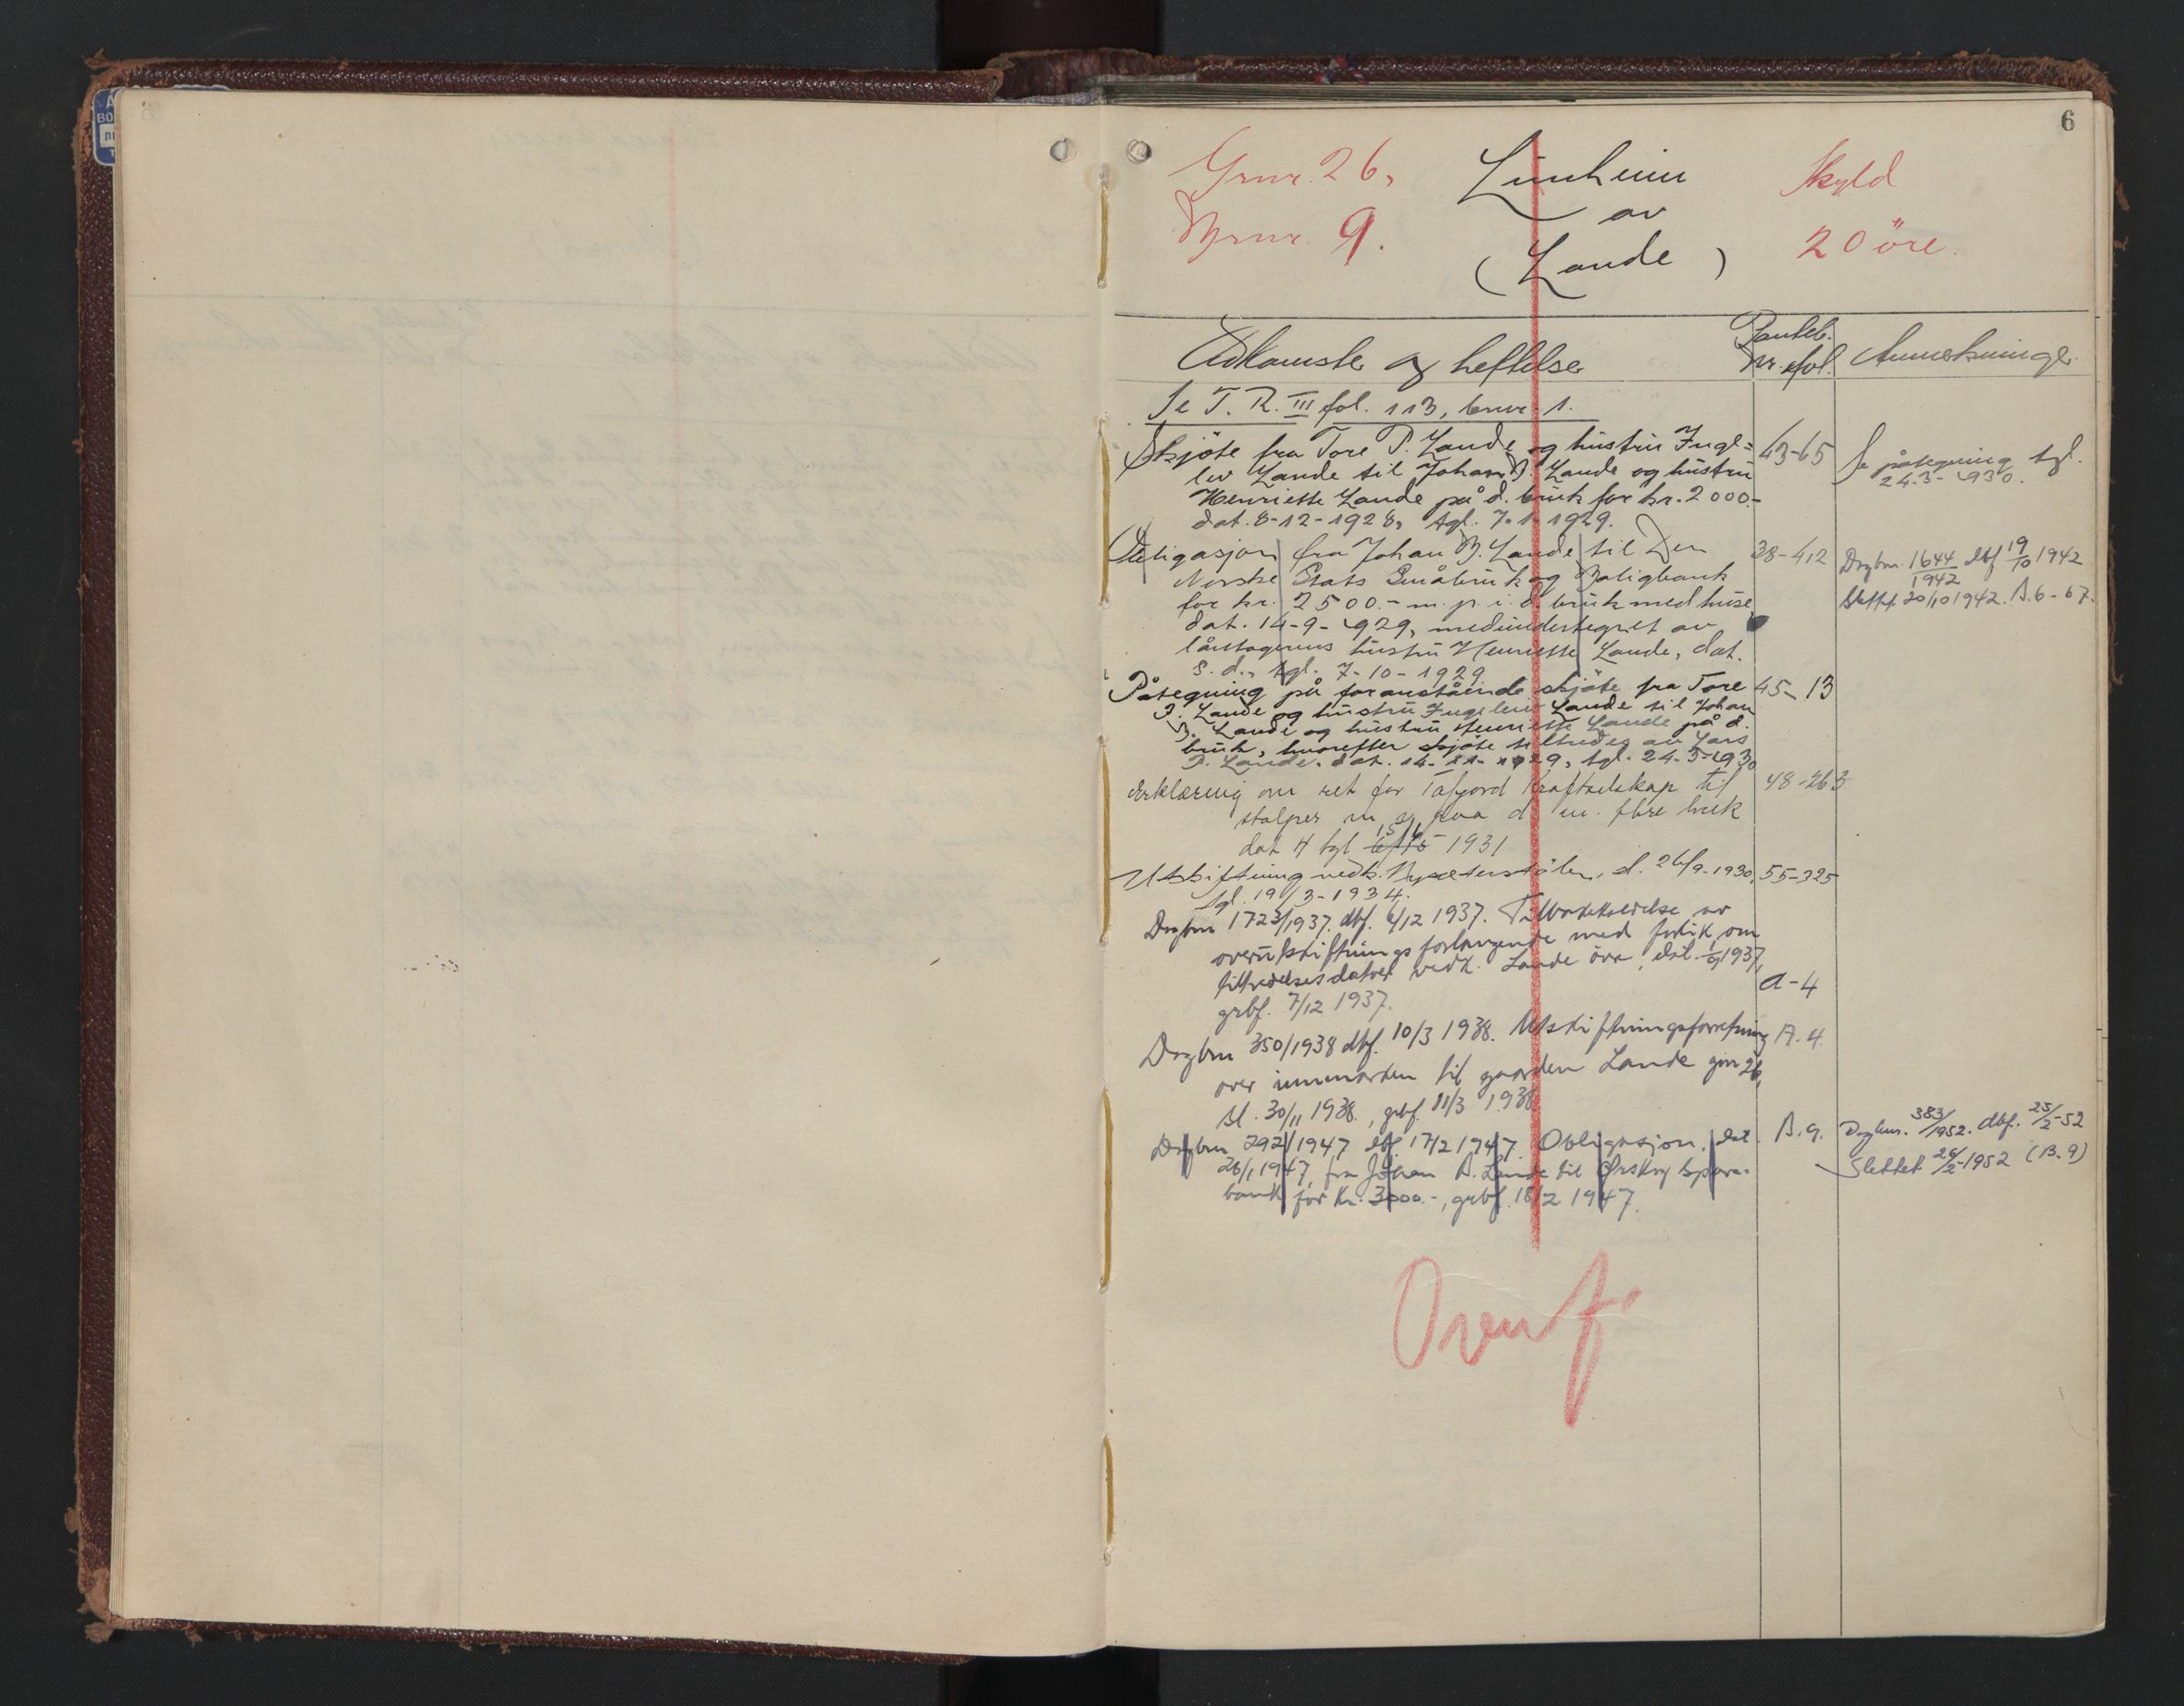 6
Grnr. 26, Linheim Skyld
av
Brnr. 9. (Lande) 20 öre.
Adkomster og heftelser Panteb. Nr. & fol. Anmerkninger
Se T. R. III fol. 113, brnr. 1.
Skjöte fra Tore P. Lande og hustru Ingе- 43-65 Se påtegning tgl.
lev Lande til Johan B. Lande og hustru 24-3-1930.
Henriette Lande på d. bruk for kr. 2000.-
dat. 8-12-1928, tgl. 7-1-1929.
Obligasjon fra Johan B. Lande til Den 38-412 Dagbnr. 1644/1942 dbf 19/10 1942
Norske Stats Småbruk og Boligbank Slettet 20/10 1942. B.6-67.
for kr. 2500.- m. p. i d. bruk med huse,
dat. 14-9-1929, medundertegnet av
låntagerens hustru Henriette Lande, dat.
s. d., tgl. 7-10-1929
Påtegning på foranstående skjöte fra Tore 45-13
P. Lande og hustru Ingelev Lande til Johan
B. Lande og hustru Henriette Lande på d.
bruk, hvorefter skjöte tiltredes av Lars
P. Lande, dat. 14-11-1929, tgl. 24-3-1930
Erklæring om ret for Tafjord Kraftselskap til 48-263
stolper m. m. paa d. m. flere bruk
dat. & tgl 15/6 1931
Utskiftning vedk. Nysæterstölen, sl. 26/9-1930, 55-325
tgl. 19/3-1934.
Dagbnr 1723/1937. dbf. 6/12 1937. Tilbakekaldelse av
overutskiftningsforlangende med forlik om
tiltredelsesdatoer vedk. Lande övr, dat. 1/9 1937,
grbf. 7/12 1937. A-4
Dagbnr 350/1938 dbf. 10/3 1938. Utskiftningsforretning A. 4.
over innmarken til gaarden Lande gnr 26,
sl. 30/11 1938, grbf. 11/3 1938
Dagbnr 292/1947 dbf. 17/2 1947. Obligasjon, dat. B. 9. Dagbnr. 383/1952. dbf. 25/2-52
28/1 1947, fra Johan B. Lande til Ørskog Spare- Slettet 26/2-1952 (B. 9)
bank for kr. 3000.-, grbf. 18/2 1947.
Overf.